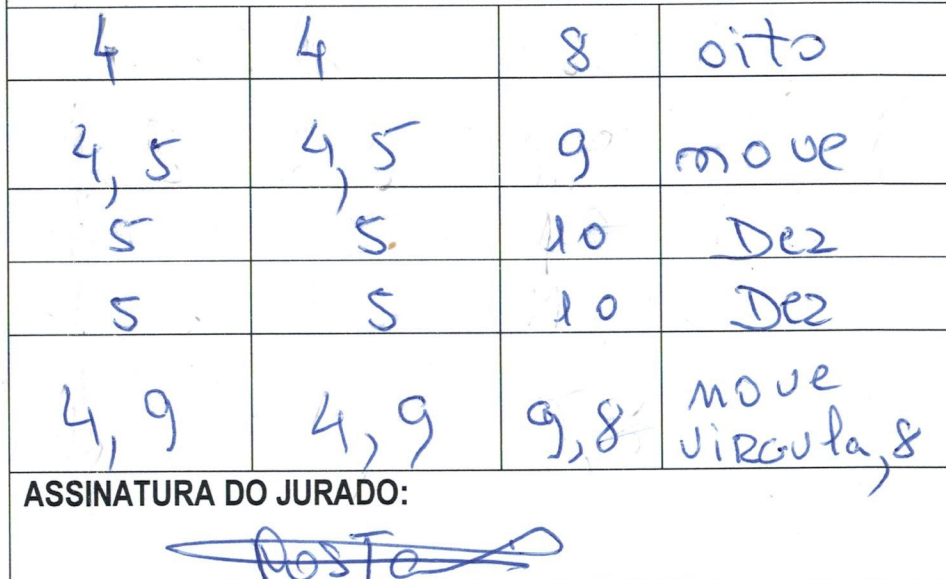 4 4 8 oito
4,5 4,5 9 nove
5 5 10 Dez
5 5 10 Dez
4,9 4,9 9,8 nove
virgula,8
ASSINATURA DO JURADO: